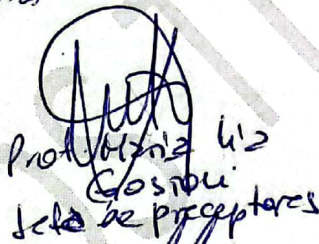 Prof. María Lía
Gosioni
Jefa de preceptores